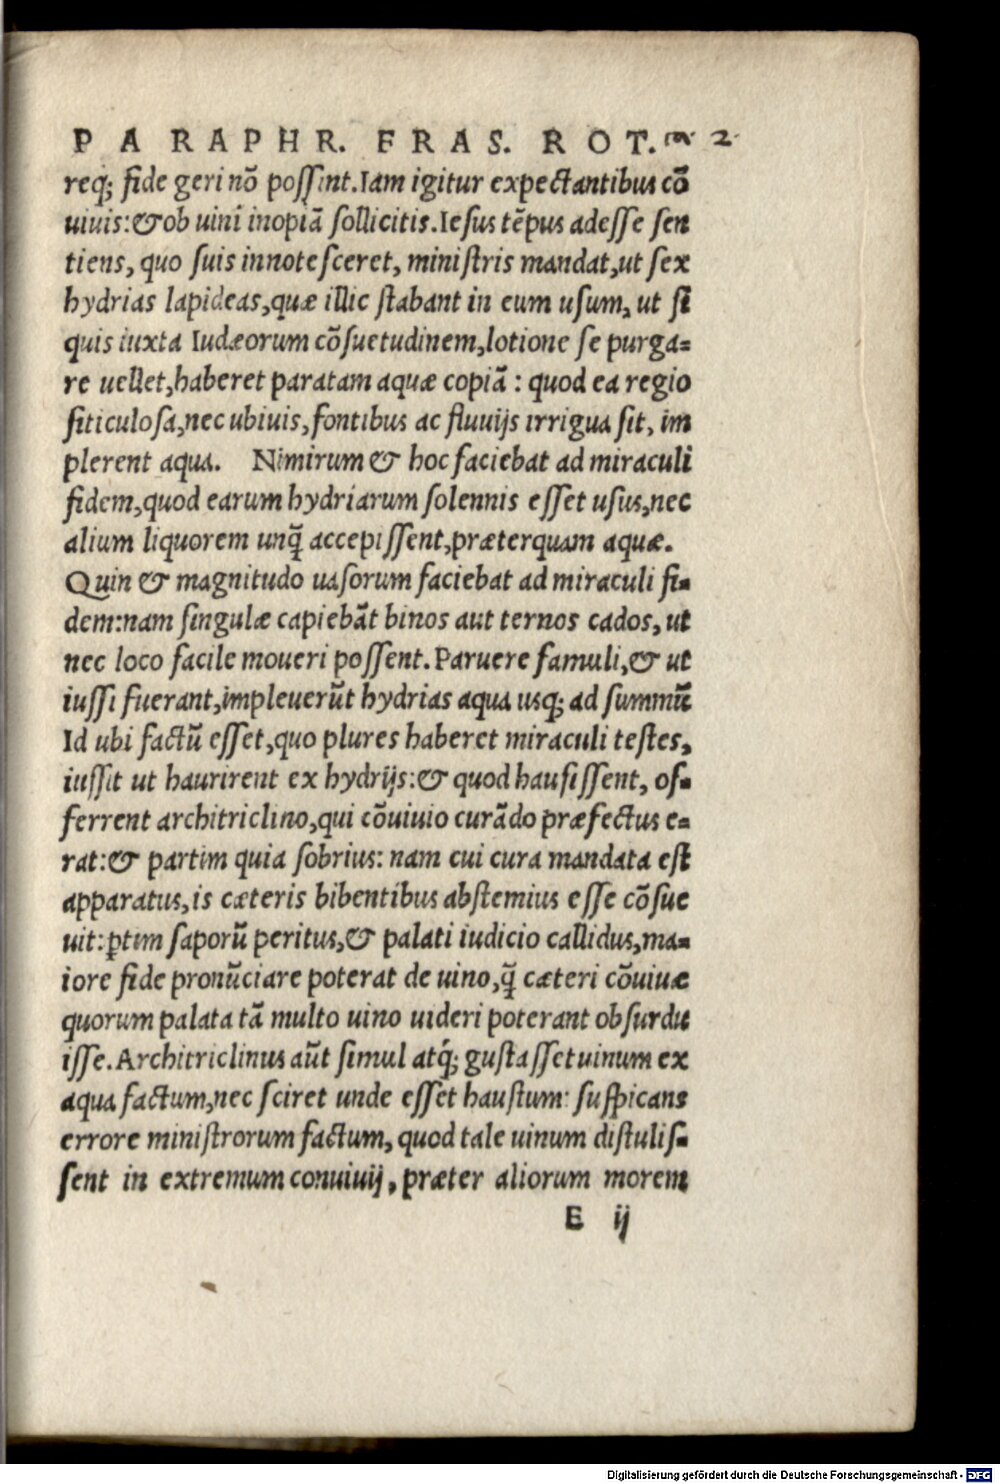 PARAPHR. FRAS. ROT. 2
req; fide geri nõ possint. Iam igitur expectantibus cõ
uiuis: & ob uini inopiã sollicitis. Iesus tẽpus adesse sen
tiens, quo suis innotesceret, ministris mandat, ut sex
hydrias lapideas, quæ illic stabant in eum usum, ut si
quis iuxta Iudæorum cõsuetudinem, lotione se purga-
re uellet, haberet paratam aquæ copiã : quod ea regio
siticulosa, nec ubiuis, fontibus ac fluuijs irrigua sit, im
plerent aqua. Nimirum & hoc faciebat ad miraculi
fidem, quod earum hydriarum solennis esset usus, nec
alium liquorem unq̃ accepissent, præterquam aquæ.
Quin & magnitudo uasorum faciebat ad miraculi fi-
dem: nam singulæ capiebãt binos aut ternos cados, ut
nec loco facile moueri possent. Paruere famuli, & ut
iussi fuerant, impleuerũt hydrias aqua usq; ad summũ
Id ubi factũ esset, quo plures haberet miraculi testes,
iussit ut haurirent ex hydrijs: & quod hausissent, of-
ferrent architriclino, qui cõuiuio curãdo præfectus e-
rat: & partim quia sobrius: nam cui cura mandata est
apparatus, is cæteris bibentibus abstemius esse cõsue
uit: ꝑtim saporũ peritus, & palati iudicio callidus, ma-
iore fide pronũciare poterat de uino, q̃ cæteri cõuiuæ
quorum palata tã multo uino uideri poterant obsurdu
isse. Architriclinus aũt simul atq; gustasset uinum ex
aqua factum, nec sciret unde esset haustum: suspicans
errore ministrorum factum, quod tale uinum distulis-
sent in extremum conuiuij, præter aliorum morem
E ij
Digitalisierung gefördert durch die Deutsche Forschungsgemeinschaft - DFG